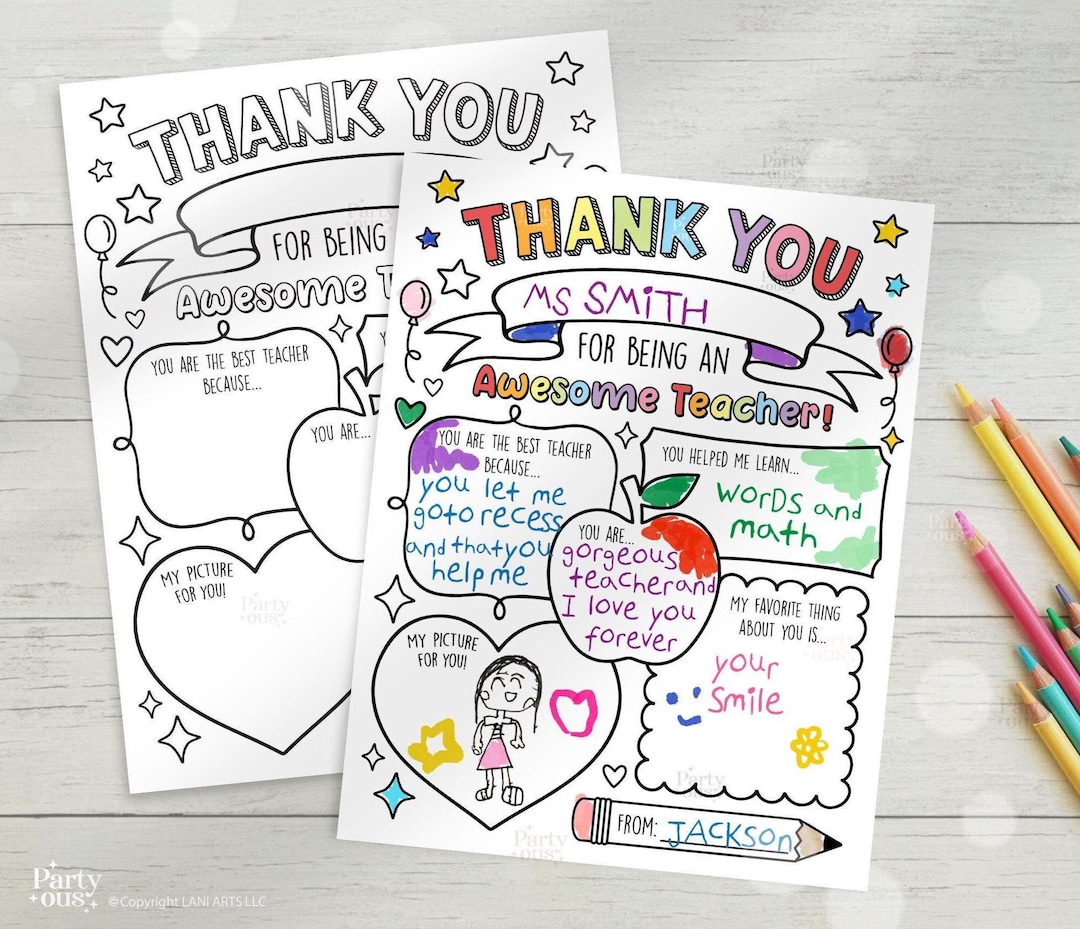 THANK YOU
FOR BEING
AWESOME T
YOU ARE THE BEST TEACHER
BECAUSE...
YOU ARE...
MY PICTURE
FOR YOU!
THANK YOU
MS SMiTH
FOR BEING AN
AWESOME TEACHER!
YOU ARE THE BEST TEACHER
BECAUSE...
you let me
goto recess
and that you
help me
YOU HELPED ME LEARN...
words and
math
YOU ARE...
gorgeous
teacher and
I love you
forever
MY PICTURE
FOR YOU!
MY FAVORITE THING
ABOUT YOU IS...
your
Smile
FROM: JACKSON
Party
ous
© Copyright LANI ARTS LLC
Party
ous
Party
ous
Party
ous
Party
ous